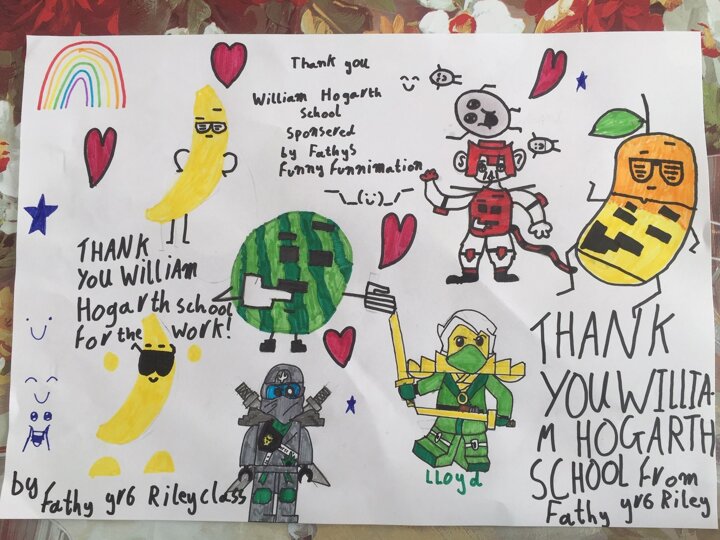 Thank you
William Hogarth
School
Sponsered
by Fathys
Funny Funnimation
¯\_(ت)_/¯
THANK
YOU WILLIAM
Hogarth school
for the work!
LLoyd
by Fathy yr6 Riley class
THANK
YOU WILLIA-
M HOGARTH
SCHOOL from
Fathy yr6 Riley